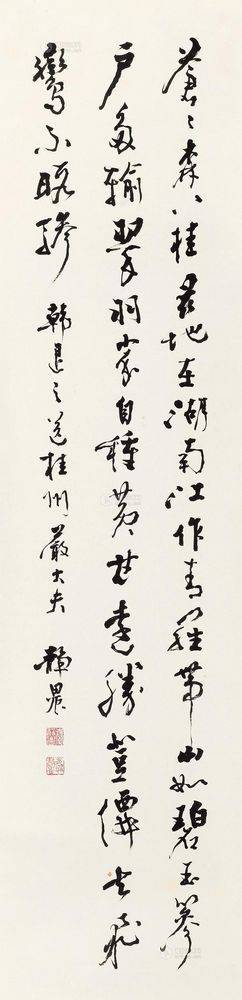 蒼蒼森八桂茲地在湖南江作青羅帶山如碧玉篸
戶多輸翠羽家自種黃甘遠勝登僊去飛
鸞不暇驂 韓退之送桂州嚴大夫 靜農